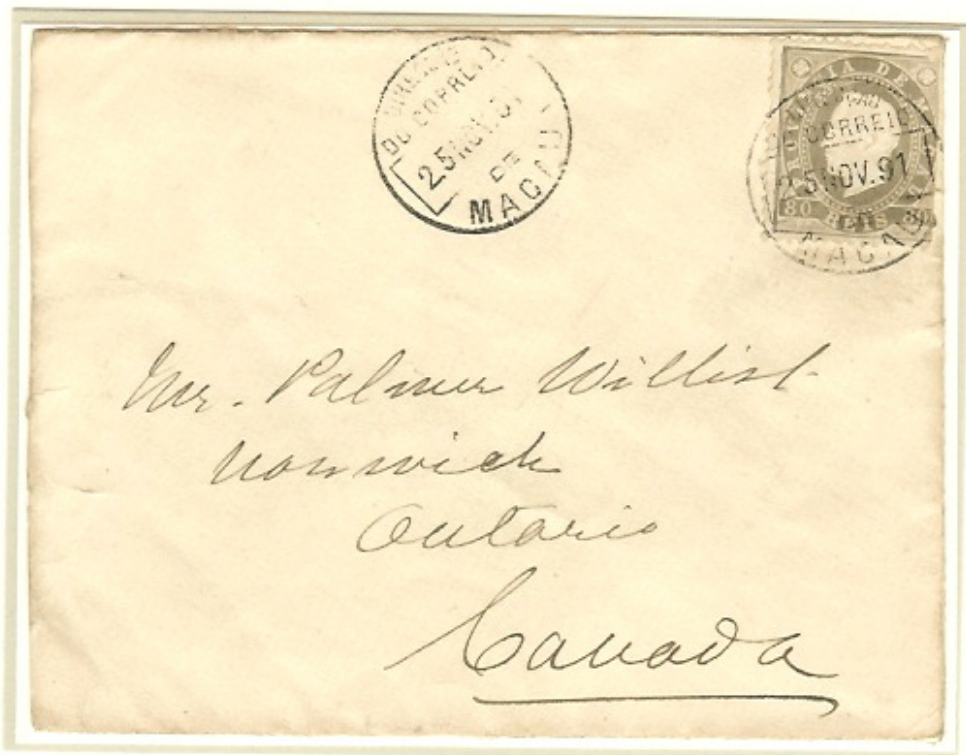 DIRECÇÃO
DO CORREIO
25 NOV. 91
DE
MACAU
PROVINCIA DE MACAU
CORREIO
25 NOV. 91
MACAU
80 REIS 80
Mr. Palmer Willist.
Norwich
Ontario
Canada